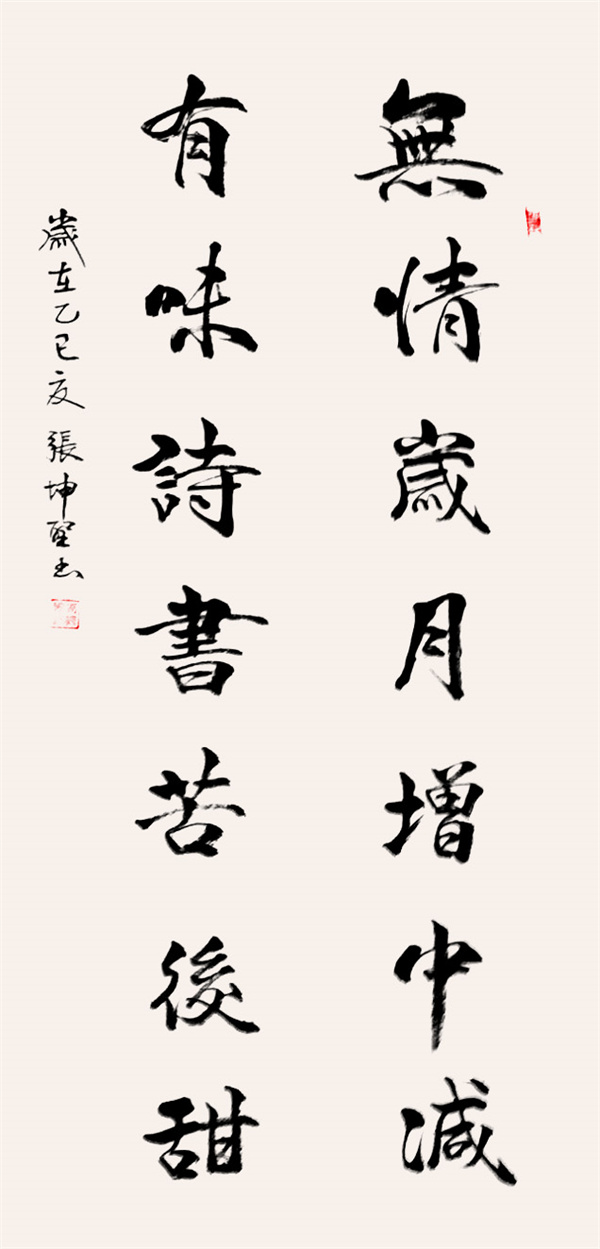 無情歲月增中減
有味詩書苦後甜
歲在乙巳夏張坤堅书